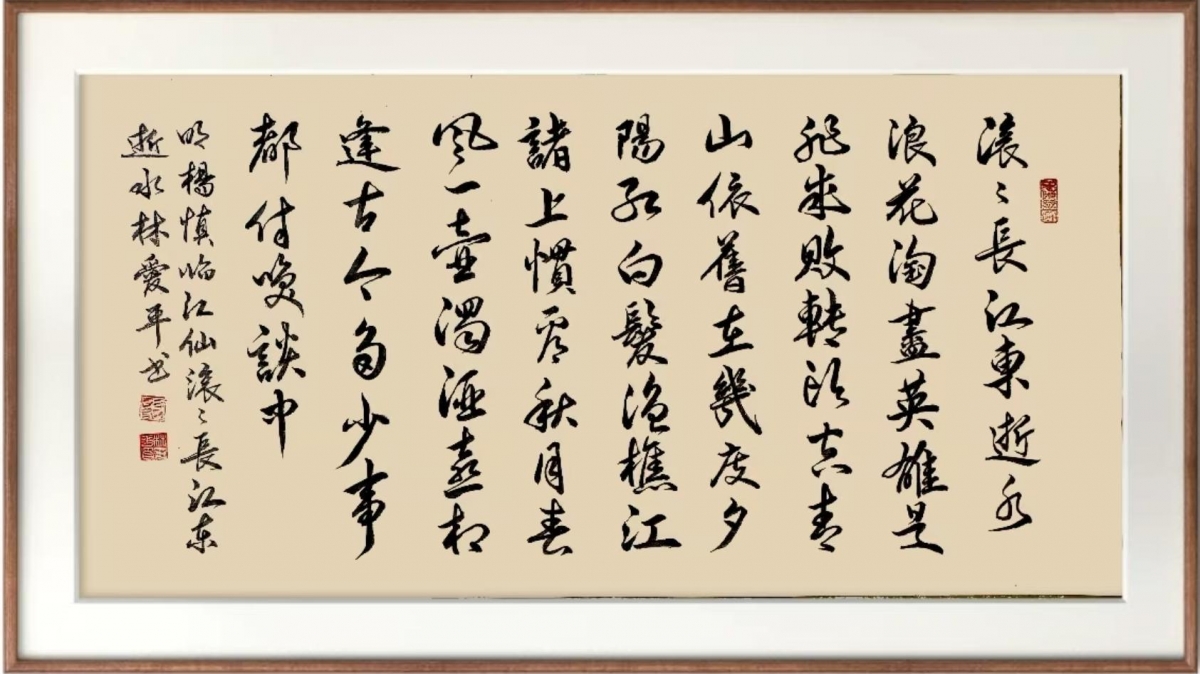 滚〻長江東逝水
浪花淘盡英雄是
非成敗轉头空青
山依舊在幾度夕
陽红白髮漁樵江
諸上慣看秋月春
風一壺濁酒喜相
逢古今多少事
都付咲談中
明楊慎临江仙滚〻長江东
逝水林愛平书